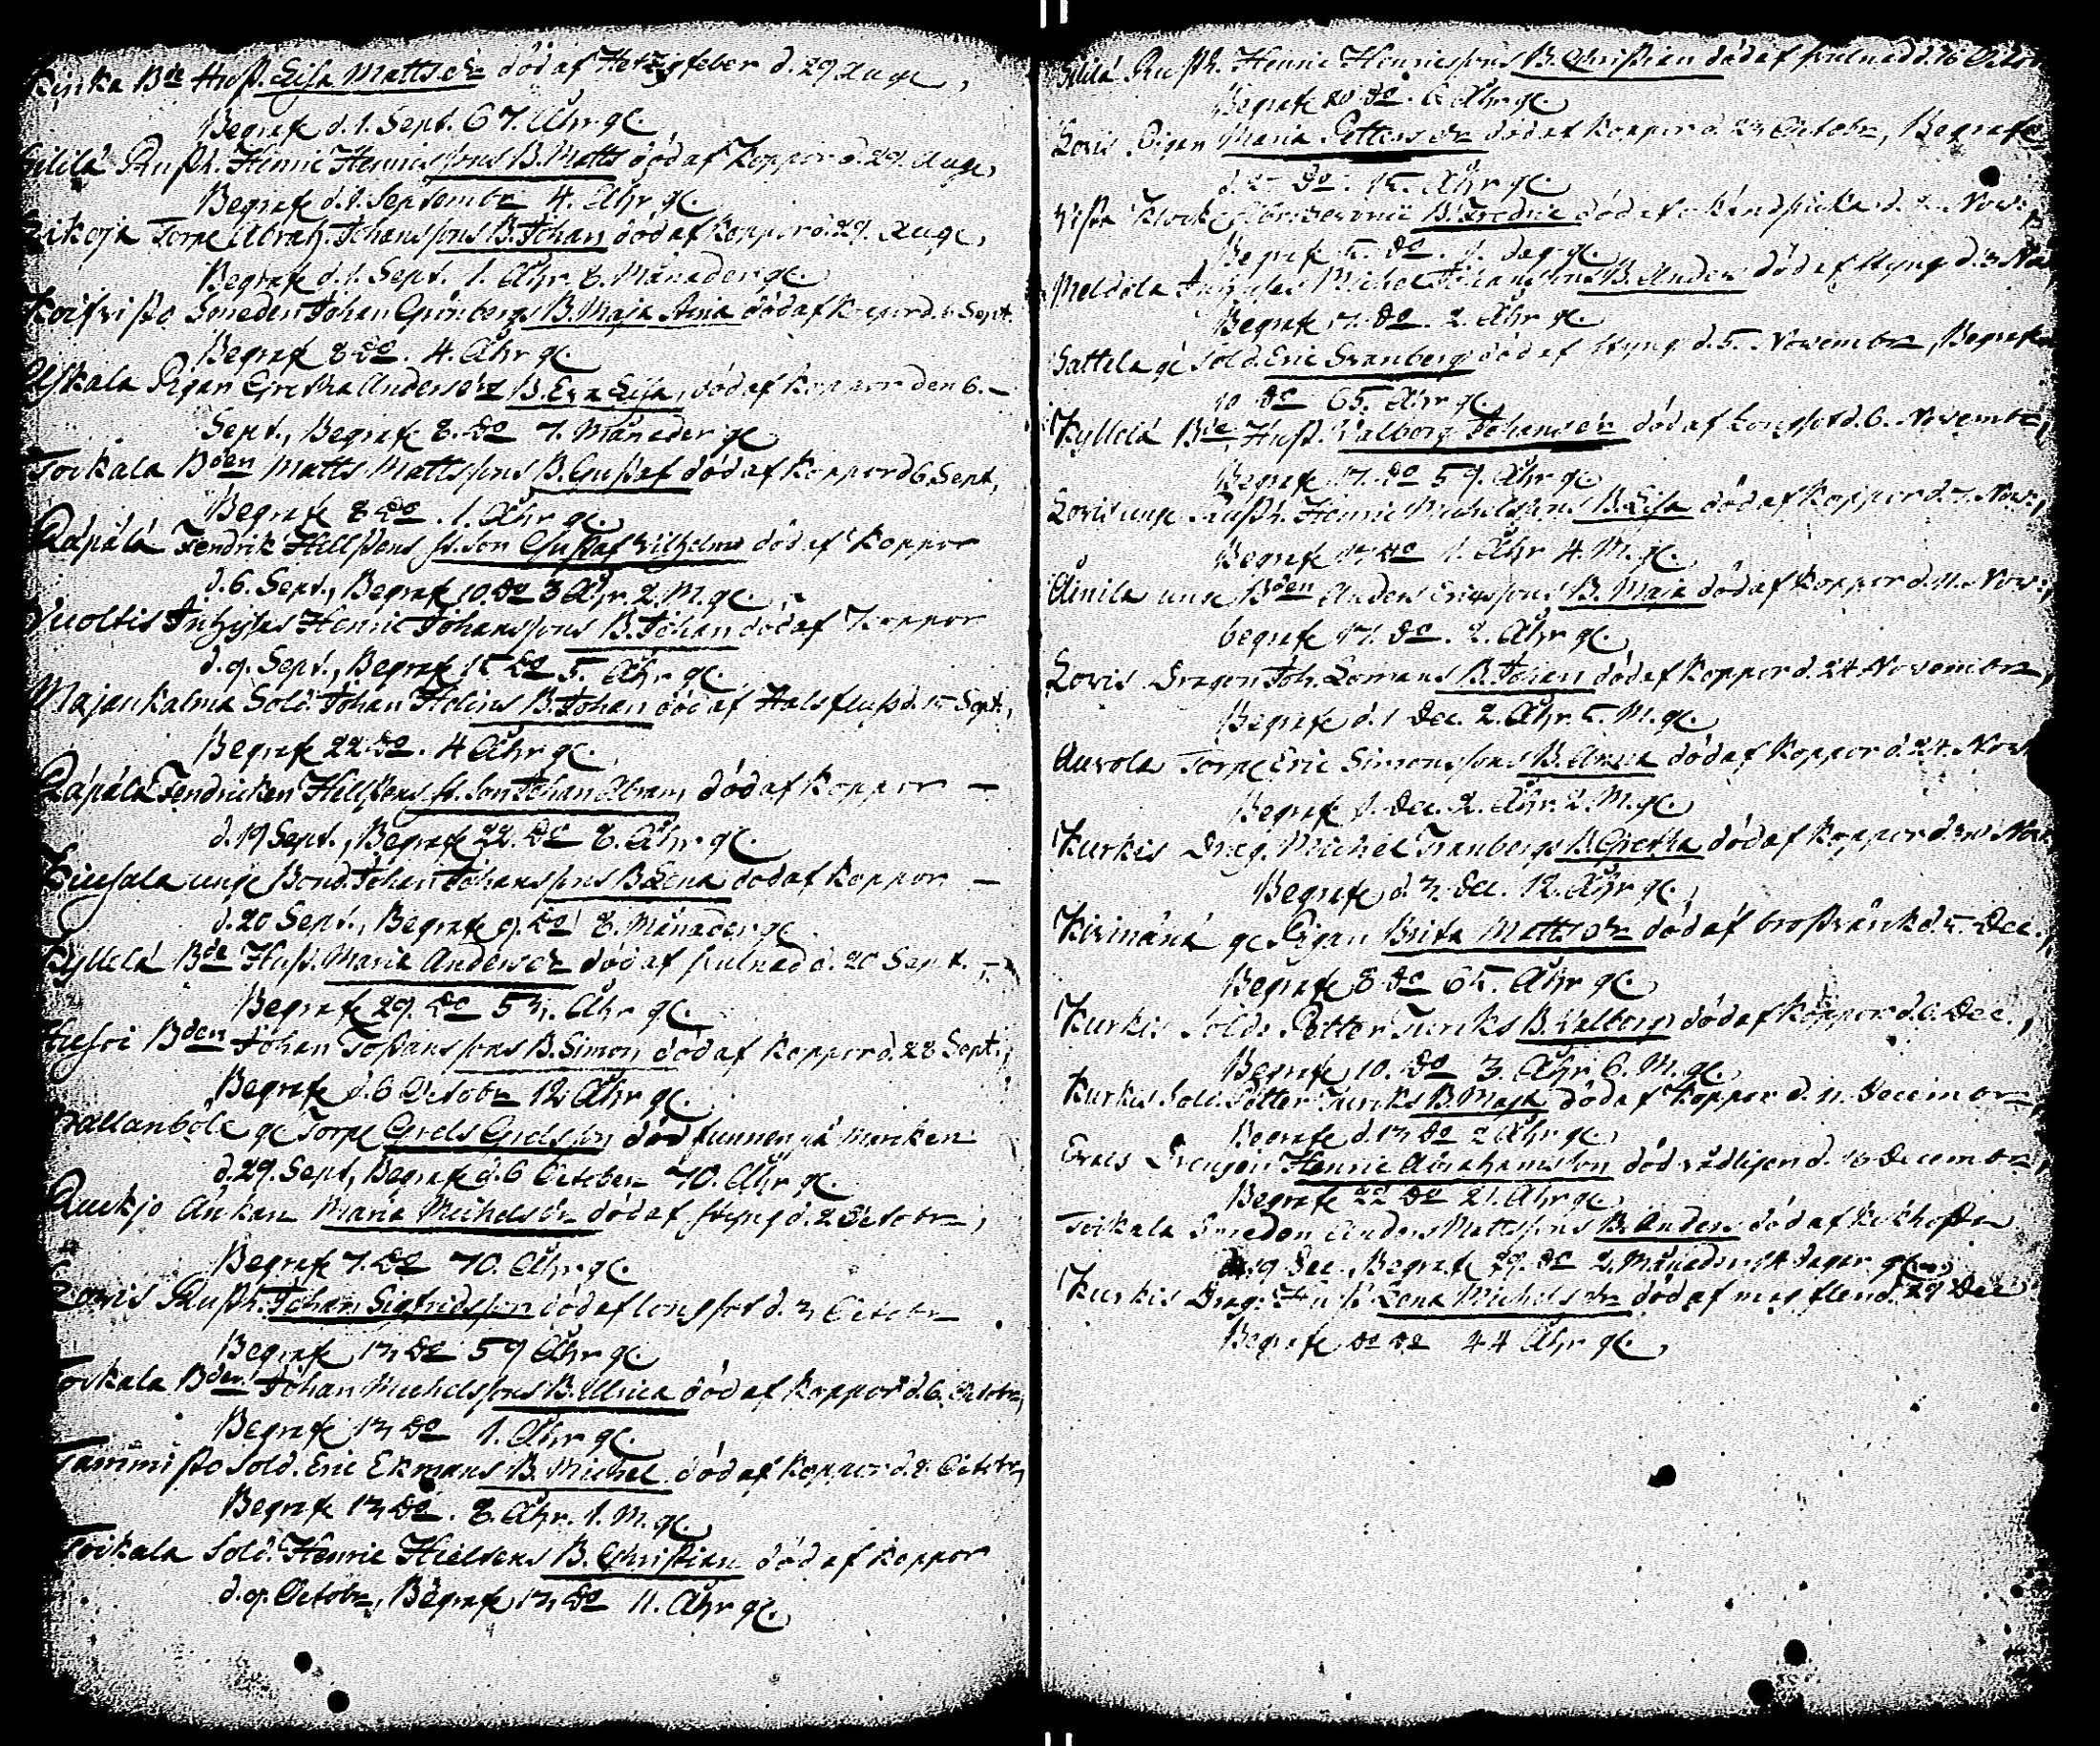 Kinka Bde Hust. Lisa Mattsdr död af Hetzigfeber d. 29 Aug.,
Begrafs d. 1. Sept. 67. Åhr gl.
Sililä Rusth. Henric Henricssons B. Matts död af Koppor d. 29. Aug.,
Begrafs d. 1. Septembr 4. Åhr gl.
Torp. Abrah. Johanssons B. Johan död af Koppor d. 29. Aug.,
Begrafs d. 1. Sept. 1. Åhr. 8. Månader gl.
Koifvisto Smeden Johan Grönbergs B. Maja Stina död af Koppor d. 6 Sept.
Begrafs 8 do. 4. Åhr gl.
Uskala Pigan Gretha Andersdr B. Eva Lisa, död af Koppor den 6.
Sept., Begrafs 8. do 7. Månader gl.
Toikala Bden Matts Mattssons B. Gustaf död af Koppor d 6. Sept,
Begrafs 8 do. 1. Åhr gl.
Räpälä Fendrik Hellstens st. son Gustaf Wilhelm död af Koppor
d. 6. Sept., Begrafs 10. do 3 Åhr. 2. M. gl.
Vuoltis Inhyses Henric Johanssons B. Johan död af Koppor
d. 9. Sept., Begrafs 15 do 5. Åhr gl.
Majankalma Sold. Johan Holins B. Johan död af Halsfluss d. 15 Sept.,
Begrafs 22 do. 4 Åhr gl.
Räpälä Fendricken Hellstens st. son Johan Abram, död af Koppor
d. 19 Sept., Begrafs 22. do 8. Åhr gl.
unge Bond. Johan Johanssons B Lena död af Koppor
d. 20 Sept., Begrafs do 8. Månader gl.
Kyllelä Bde Hust. Maria Andersdr död af fulnad d. 20 Sept.
Begrafs 29. do 53. Åhr gl.
Husoi Bden Johan Tossanssons B. Simon död af Koppor d. 28 Sept.,
Begrafs d. 6 Octobr 12 Åhr gl.
Wallanböle gl Torp Grels Grelsson död funnen på marken
d. 29. Sept, Begrafs d. 6 October 70. Åhr gl.
Ruckjo Änkan Maria Michelsdr död af styng d. 2 Octobr,
Begrafs 7. do 70. Åhr. gl.
Lovis Rusth. Johan Sigfridsson död af longsot d. 3 Octobr
Begrafs 13 do 59 Åhr gl
Toikala Bden Johan Michelssons B. Ullrica död af Koppor d. 6. Octobr,
Begrafs 13 do 1. Åhr gl.
Tammisto Sold. Eric Ekmans B. Michel död af Koppor d. 8. Octobr,
Begrafs 13 do. 8. Åhr. 1. M. gl
Toikala Sold. Henric Hielsens B. Christian död af Koppor
d. 9. Octobr, Begrafs 13 do 11. Åhr gl.
Sililä Rusth. Henric Henricssons B. Christian död af fulnad d. 16 Octob
Begrafs 20 do. 6 Åhr gl.
Lovis Pigan Maria Pettersdr död af Koppor d. 23 Octobr, Begrafs
d. do. 15. Åhr gl.
B. Fredric död af okänd sjuka d. 2. Nov.,
Begrafs 5. do. 1. dag gl.
Moldola Inhyses Michel Johanssons B. Anders död af styng d. 3 No
Begrafs 17. do. 2. Åhr gl.
Sattila gl Sold. Eric Svanberg död af styng d. 5. Novembr, Begrafs
10 do 65. Åhr gl.
Kyllelä Bde Hust. Valborg Johansdr död af longsot d. 6. Novembr,
Begrafs 17. do 59. Åhr gl.
Lovis unge Rusth. Henric Michelssons B. Lisa död af Koppor d. 7. Nov.,
Begrafs 17. do 1. Åhr 4. M. gl.
Ämilä unge Bden Anders Ericssons B. Maja död af Koppor d. 11. Nov.,
begrafs 17. do. 2. Åhr gl.
Lovis Dragon Joh. Lomans B. Johan död af Koppor d. 24 Novembr,
Begrafs d. 1 Dec. 2. Åhr. 5. M. gl.
Auvola Torp. Eric Simonssons B. Anna död af Koppor d. 24. Nov
Begrafs 1. Dec. 2. Åhr. 2. M. gl.
Kurkis Drag. Michel Tranbergs B. Gretha död af Koppor d. 30 Nov
Begrafs d. 3. Dec. 12. Åhr gl.
Kirinänä gl Pigan Brita Mattsdr död af brostvärk d. 5. Dec.,
Begrafs 8 do 65. Åhr gl.
Kurkis Sold. Petter Turcks B. Valborg död af Koppor d. 6. Dec.,
Begrafs 10. do 3. Åhr 6. M. gl.
Kurkis Sold. Petter Turcks B. Maja död af Koppor d. 11. Decembr,
Begrafs d. 13 do 2 Åhr gl.
Drengen Henric Abrahamsson död vådligen d. 16 Decembr,
Begrafs 22 do 21. Åhr gl.
Toikala Smeden Anders Mattssons B. Anders död af kikhosta
d. 19 Dec., Begrafs 29. do 2. Månader 14 dagar gl.
Kurkis Drag. Hust. Lena Michelsdr död af d. 29 Dec
Begrafs do do 44 Åhr gl.